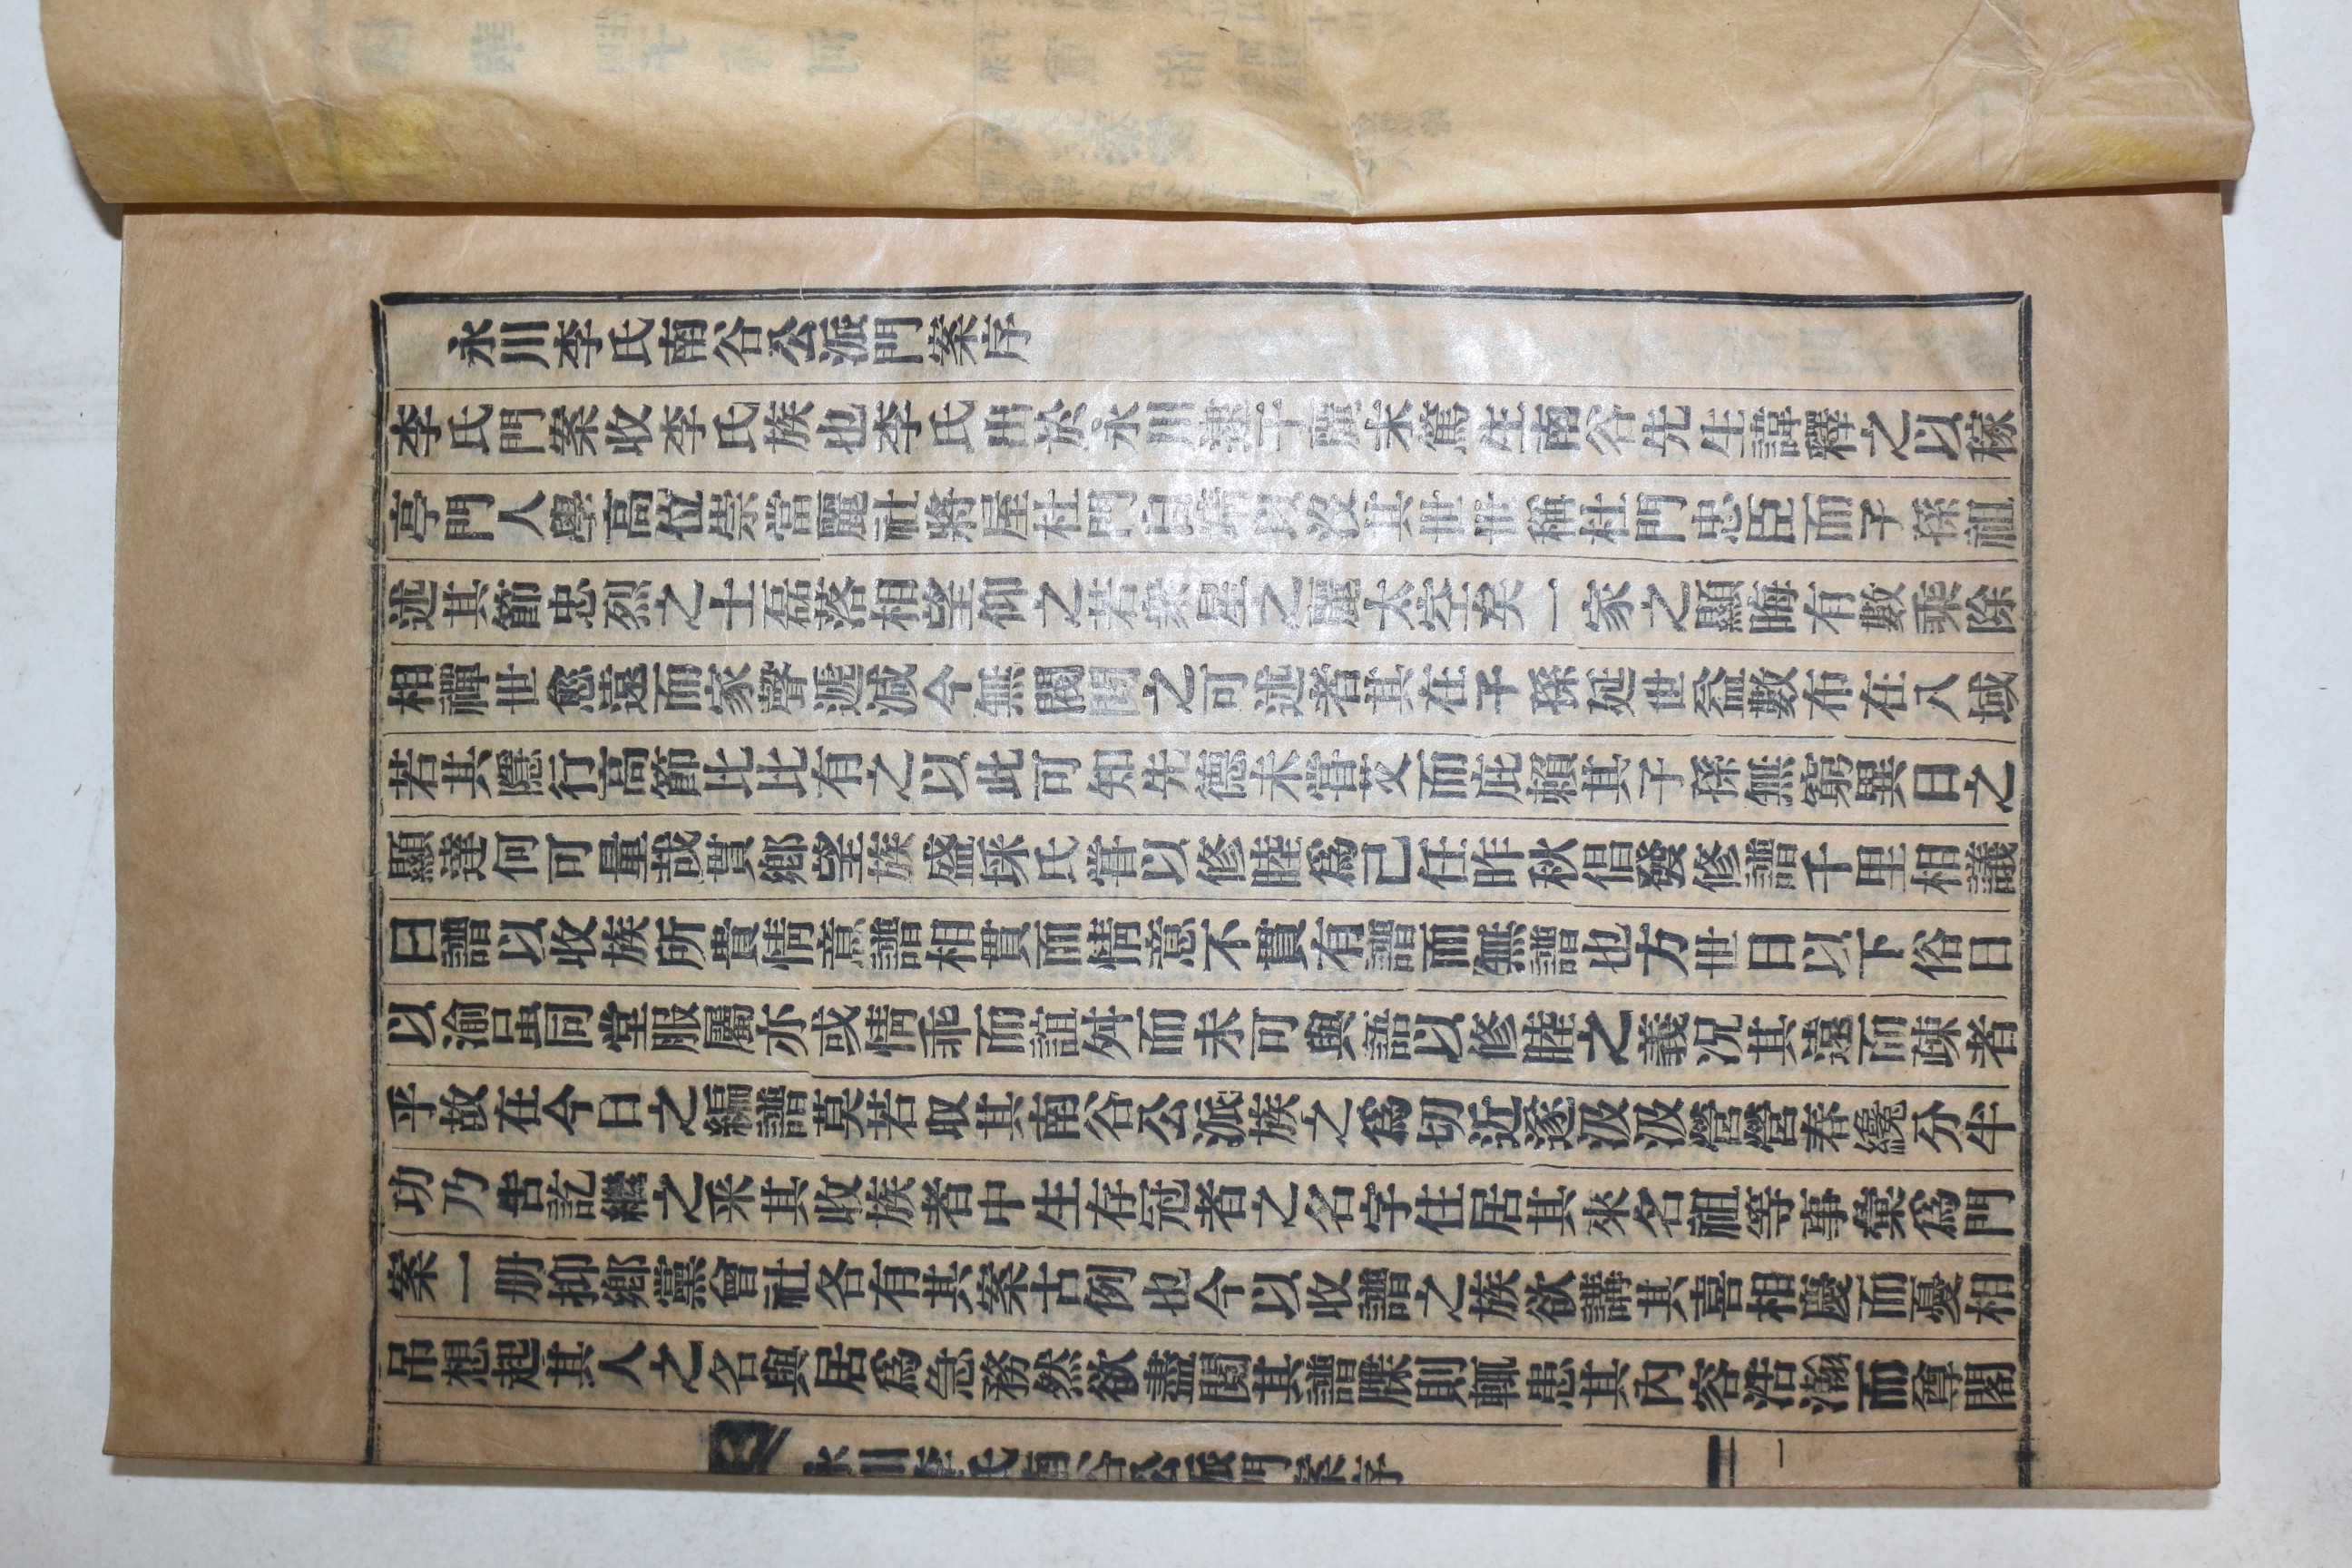 永川李氏南谷公派門案序
李氏門案收李氏族也李氏出於永川基于麗末篤生南谷先生諱釋之以稼
亭門人學高位崇當麗社將屋杜門自靖以沒其世世稱杜門忠臣而子孫祖
述其節忠烈之士磊落相望仰之若衆星之麗太空矣一家之顯晦有數乘除
相禪世愈遠而家聲遞減今無閥閱之可述者其在子孫延世益數布在八域
若其隱行高節比比有之以此可知先德未嘗艾而庇賴其子孫無窮異日之
顯達何可量哉貫鄉望族盛採氏嘗以修睦爲己任昨秋倡發修譜千里相議
曰譜以收族所貴情意譜相貫而情意不貫有譜而無譜也方世日以下俗日
以渝邑同堂服屬亦或情乖而誼舛而未可與語以修睦之義況其遠而疎者
乎故在今日之編譜莫若收其南谷公派族之爲切近遂汲汲營營春纔分半
功乃告訖繼之采其收族者中生存冠者之名字住居其來名祖等事彙爲門
案一册抑鄉黨會社各有其案古例也今以收譜之族欲講其喜相慶而憂相
吊想起其人之名與居爲急務然欲盡閱其譜牒則輒患其內容浩瀚而尊閣
永川李氏南谷公派門案序 一